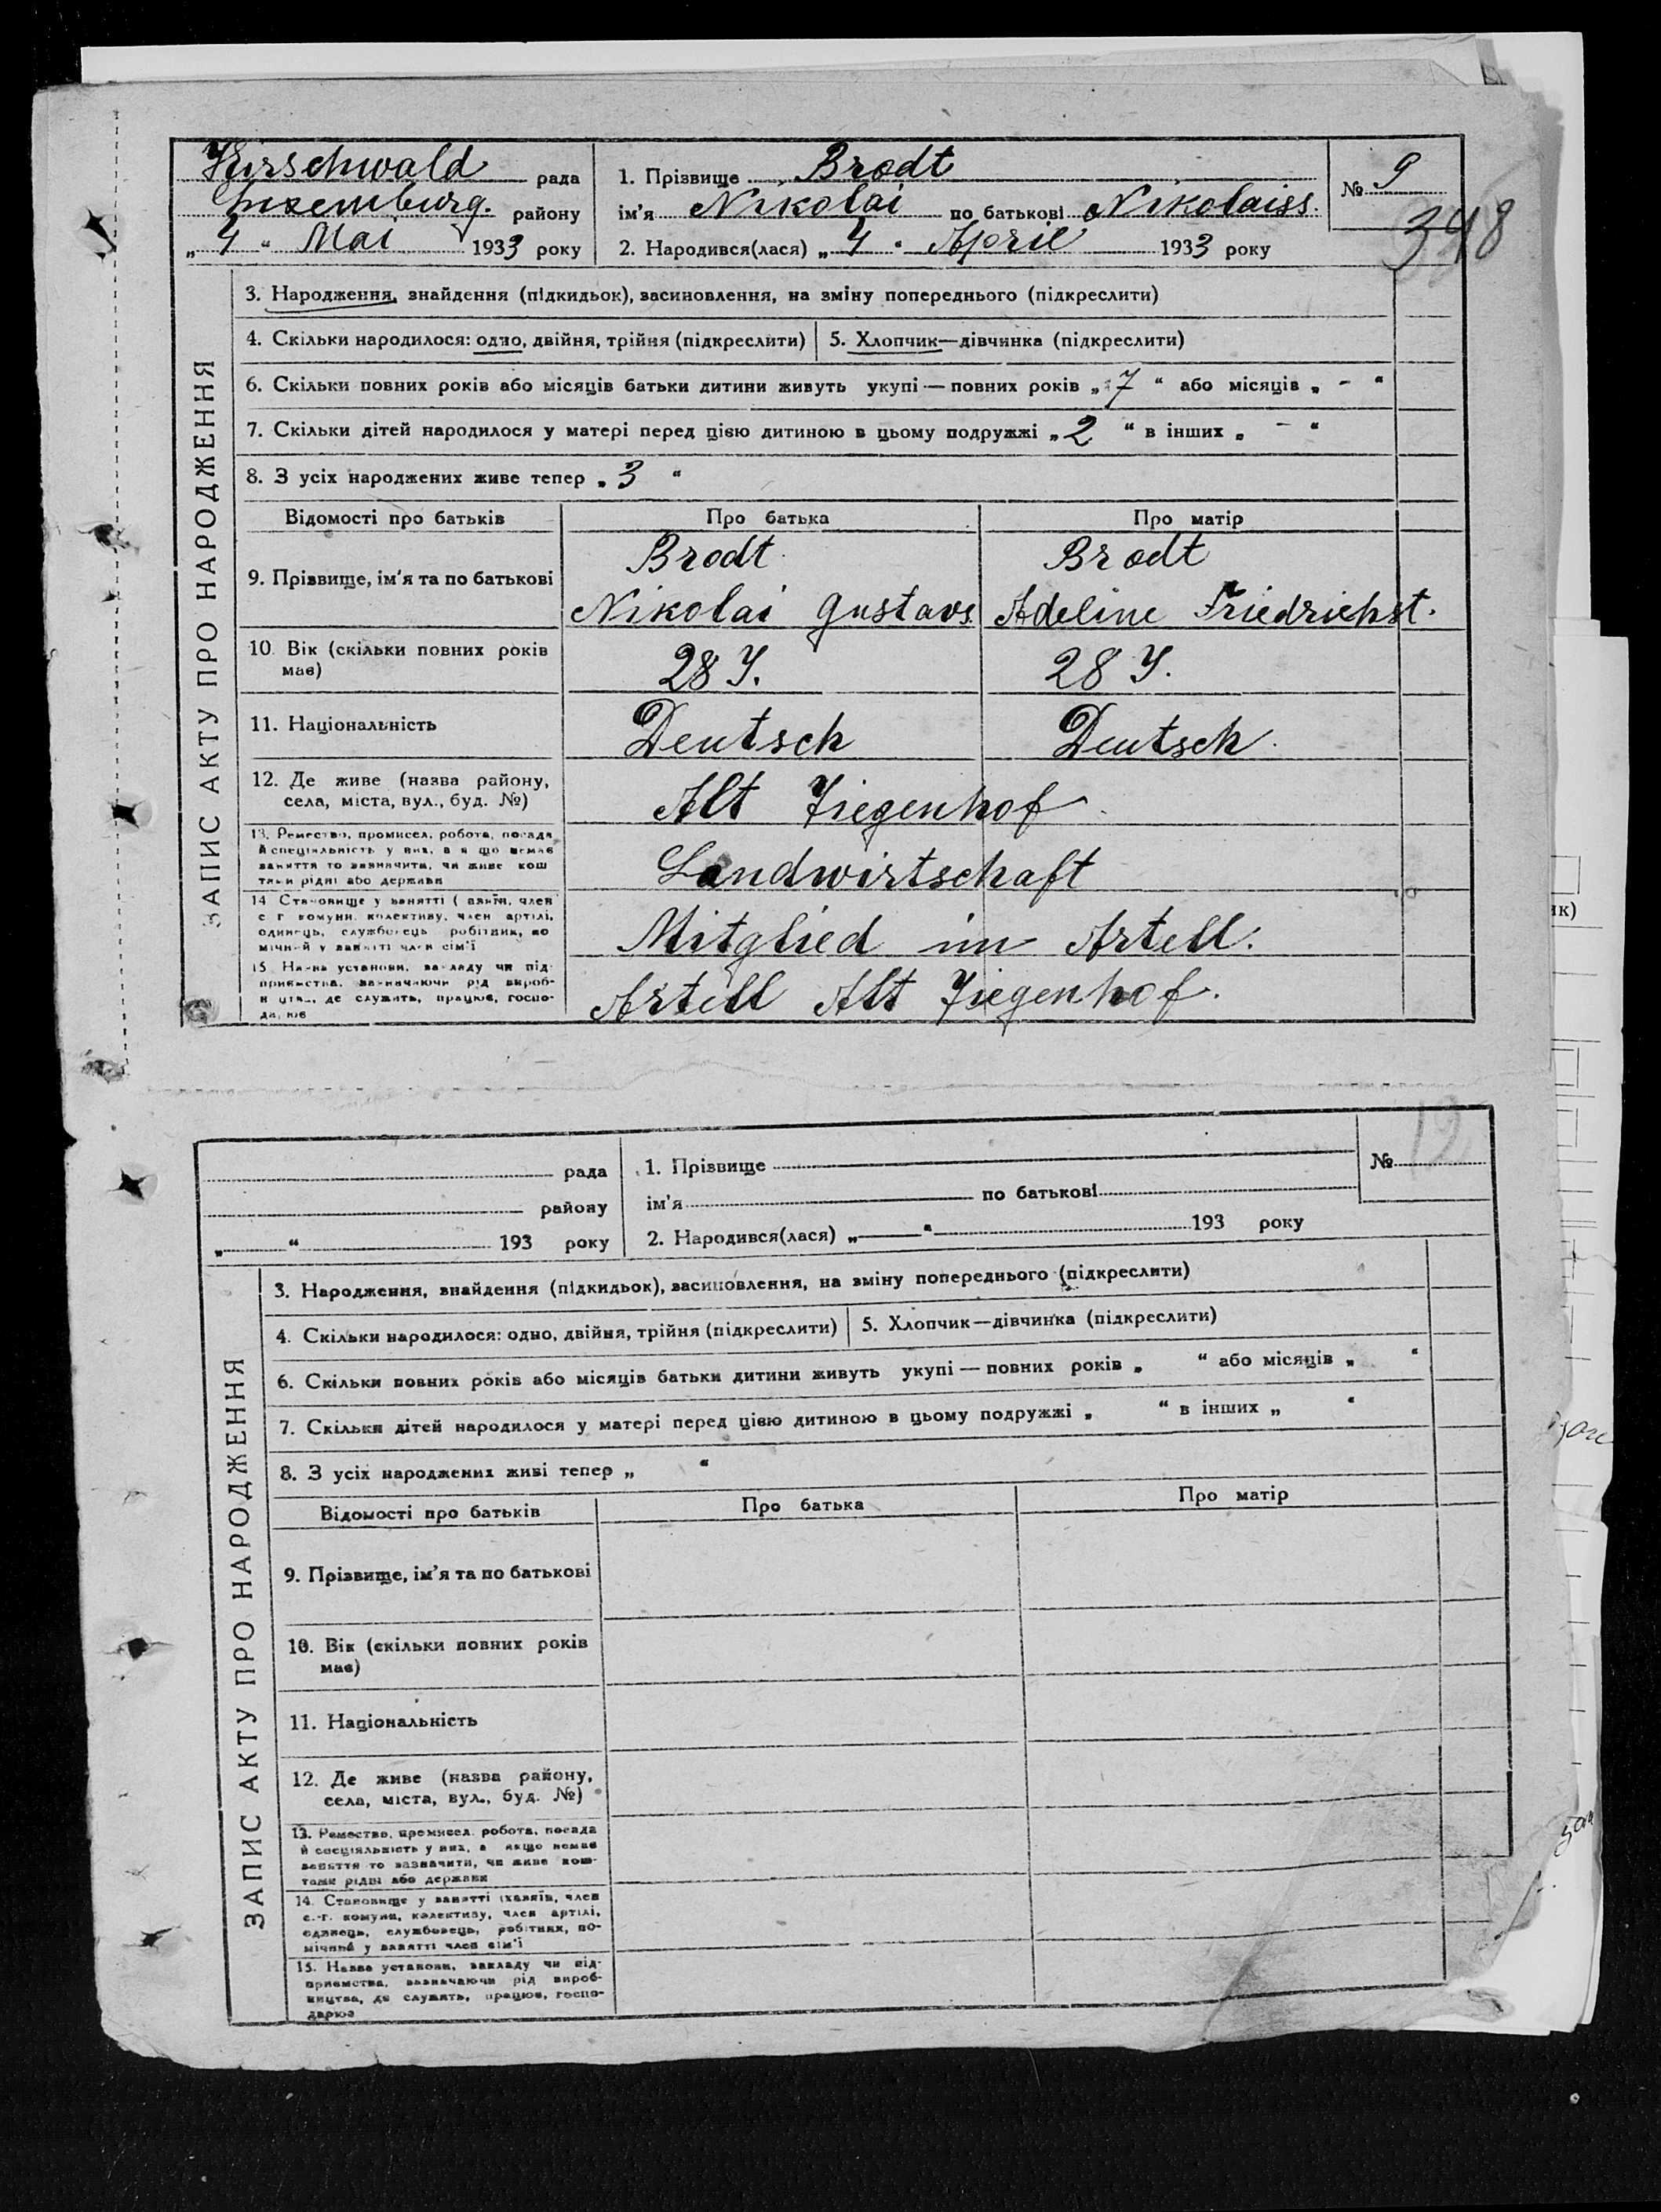 Kirschwald рада
Luxemburg. району
„ 4 “ Mai 1933 року
1. Прізвище Brodt
ім'я Nikolai по батькові Nikolaiss.
2. Народився(лася) „ 4 “ April 1933 року
№ 9
348
ЗАПИС АКТУ ПРО НАРОДЖЕННЯ
3. Народження, знайдення (підкидьок), засиновлення, на зміну попереднього (підкреслити)
4. Скільки народилося: одно, двійня, трійня (підкреслити) 5. Хлопчик—дівчинка (підкреслити)
6. Скільки повних років або місяців батьки дитини живуть укупі — повних років „ 7 “ або місяців „ - “
7. Скільки дітей народилося у матері перед цією дитиною в цьому подружжі „ 2 “ в інших „ - “
8. З усіх народжених живе тепер „ 3 “
Відомості про батьків Про батька Про матір
9. Прізвище, ім'я та по батькові
Brodt Brodt
Nikolai Gustavs. Adeline Friedrichst.
10. Вік (скільки повних років має)
28 J. 28 J.
11. Національність
Deutsch Deutsch.
12. Де живе (назва району,
села, міста, вул., буд. №)
Alt Ziegenhof
13. Ремество, промисел, робота, посада
й спеціяльність у них, а якщо немає
заняття то зазначити, чи живе кош
тами рідні або держави
Landwirtschaft
14. Становище у занятті (хазяїн, член
с г комуни, колективу, член артілі,
одинець, службовець робітник, по
мічний у занятті член сім'ї
Mitglied im Artell.
15. Назва установи, закладу чи під-
приємства, зазначаючи рід вироб-
ництва, де служить, працює, госпо-
дарює
Artell Alt Ziegenhof.
12
рада
району
„ “ 193 року
1. Прізвище
ім'я по батькові
2. Народився(лася) „ “ 193 року
№
ЗАПИС АКТУ ПРО НАРОДЖЕННЯ
3. Народження, знайдення (підкидьок), засиновлення, на зміну попереднього (підкреслити)
4. Скільки народилося: одно, двійня, трійня (підкреслити) 5. Хлопчик—дівчинка (підкреслити)
6. Скільки повних років або місяців батьки дитини живуть укупі — повних років „ “ або місяців „ “
7. Скільки дітей народилося у матері перед цією дитиною в цьому подружжі „ “ в інших „ “
8. З усіх народжених живі тепер „ “
Відомості про батьків Про батька Про матір
9. Прізвище, ім'я та по батькові
10. Вік (скільки повних років
має)
11. Національність
12. Де живе (назва району,
села, міста, вул., буд. №)
13. Ремество, промисел, робота, посада
й спеціяльність у них, а якщо немає
заняття то зазначити, чи живе кош-
тами рідні або держави
14. Становище у занятті (хазяїн, член
с.-г. комуни, колективу, член артілі,
одинець, службовець, робітник, по-
мічний у занятті член сім'ї
15. Назва установи, закладу чи під-
приємства, зазначаючи рід вироб-
ництва, де служить, працює, госпо-
дарює